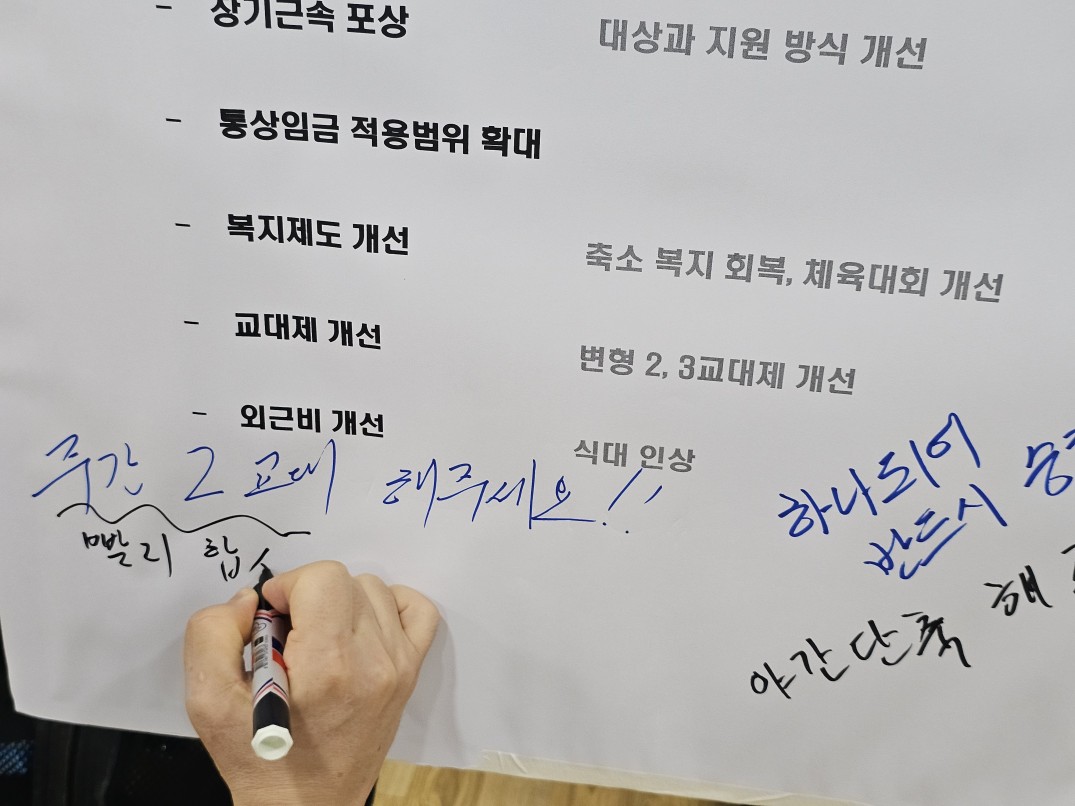 - 장기근속 포상 대상과 지원 방식 개선
- 통상임금 적용범위 확대
- 복지제도 개선 축소 복지 회복, 체육대회 개선
- 교대제 개선 변형 2, 3교대제 개선
- 외근비 개선 식대 인상
주간 2교대 해주세요!!
빨리 합
하나되어
반드시
야간단축 해